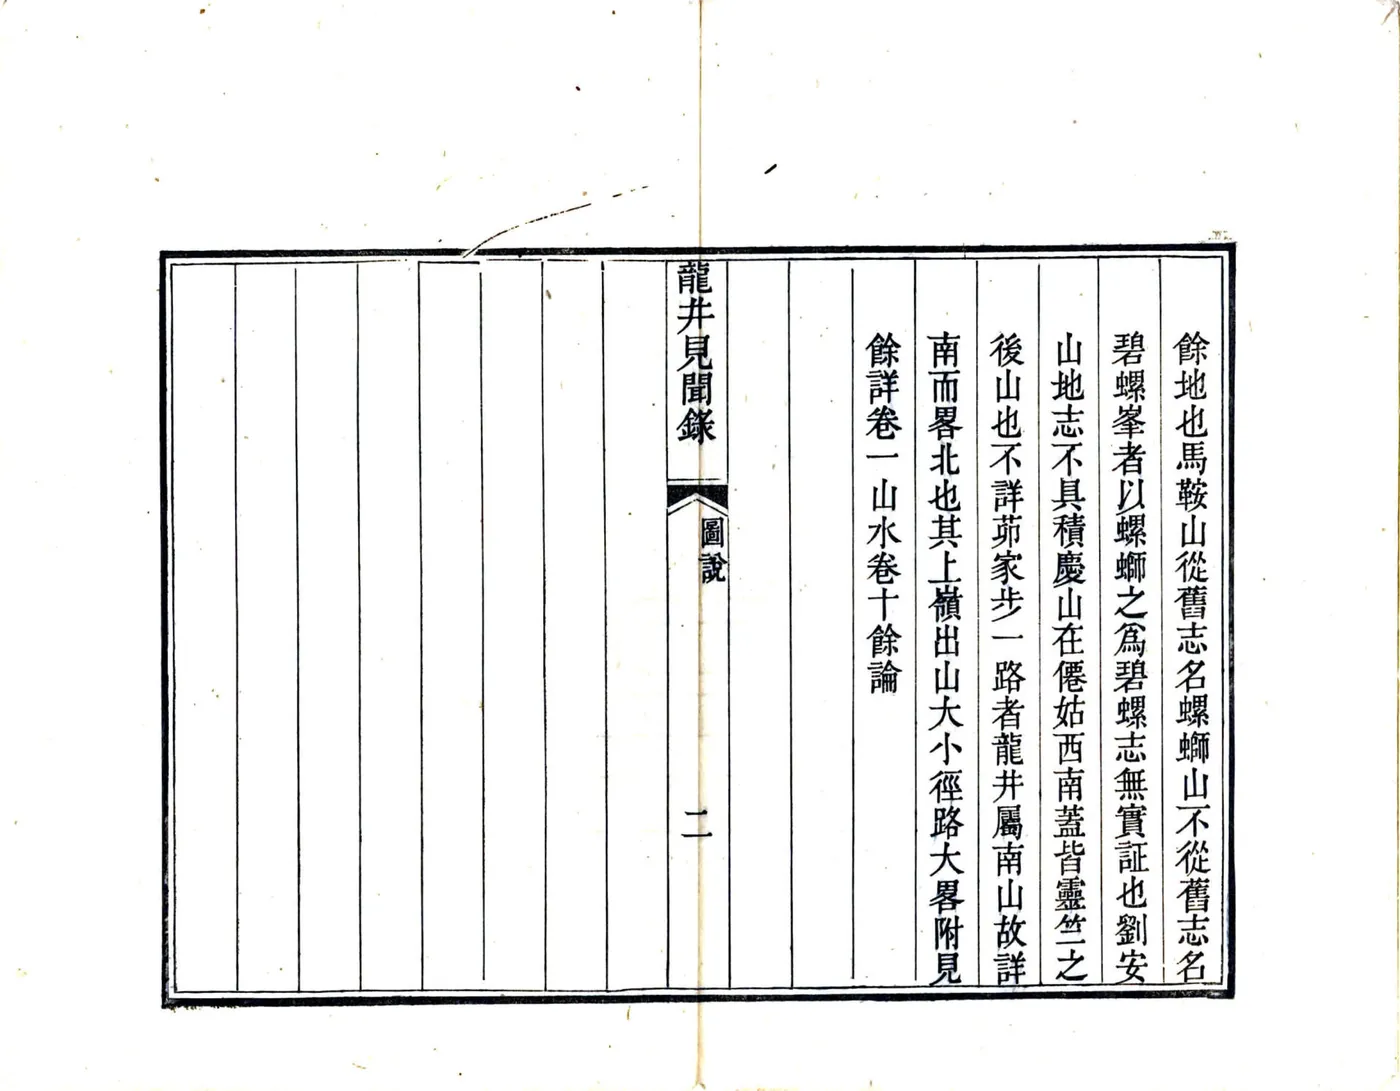 餘地也馬鞍山從舊志名螺螄山不從舊志名
碧螺峯者以螺螄之爲碧螺志無實証也劉安
山地志不具積慶山在僊姑西南蓋皆靈竺之
後山也不詳茆家步一路者龍井屬南山故詳
南而畧北也其上嶺出山大小徑路大畧附見
餘詳卷一山水卷十餘論
龍井見聞錄
圖說
二